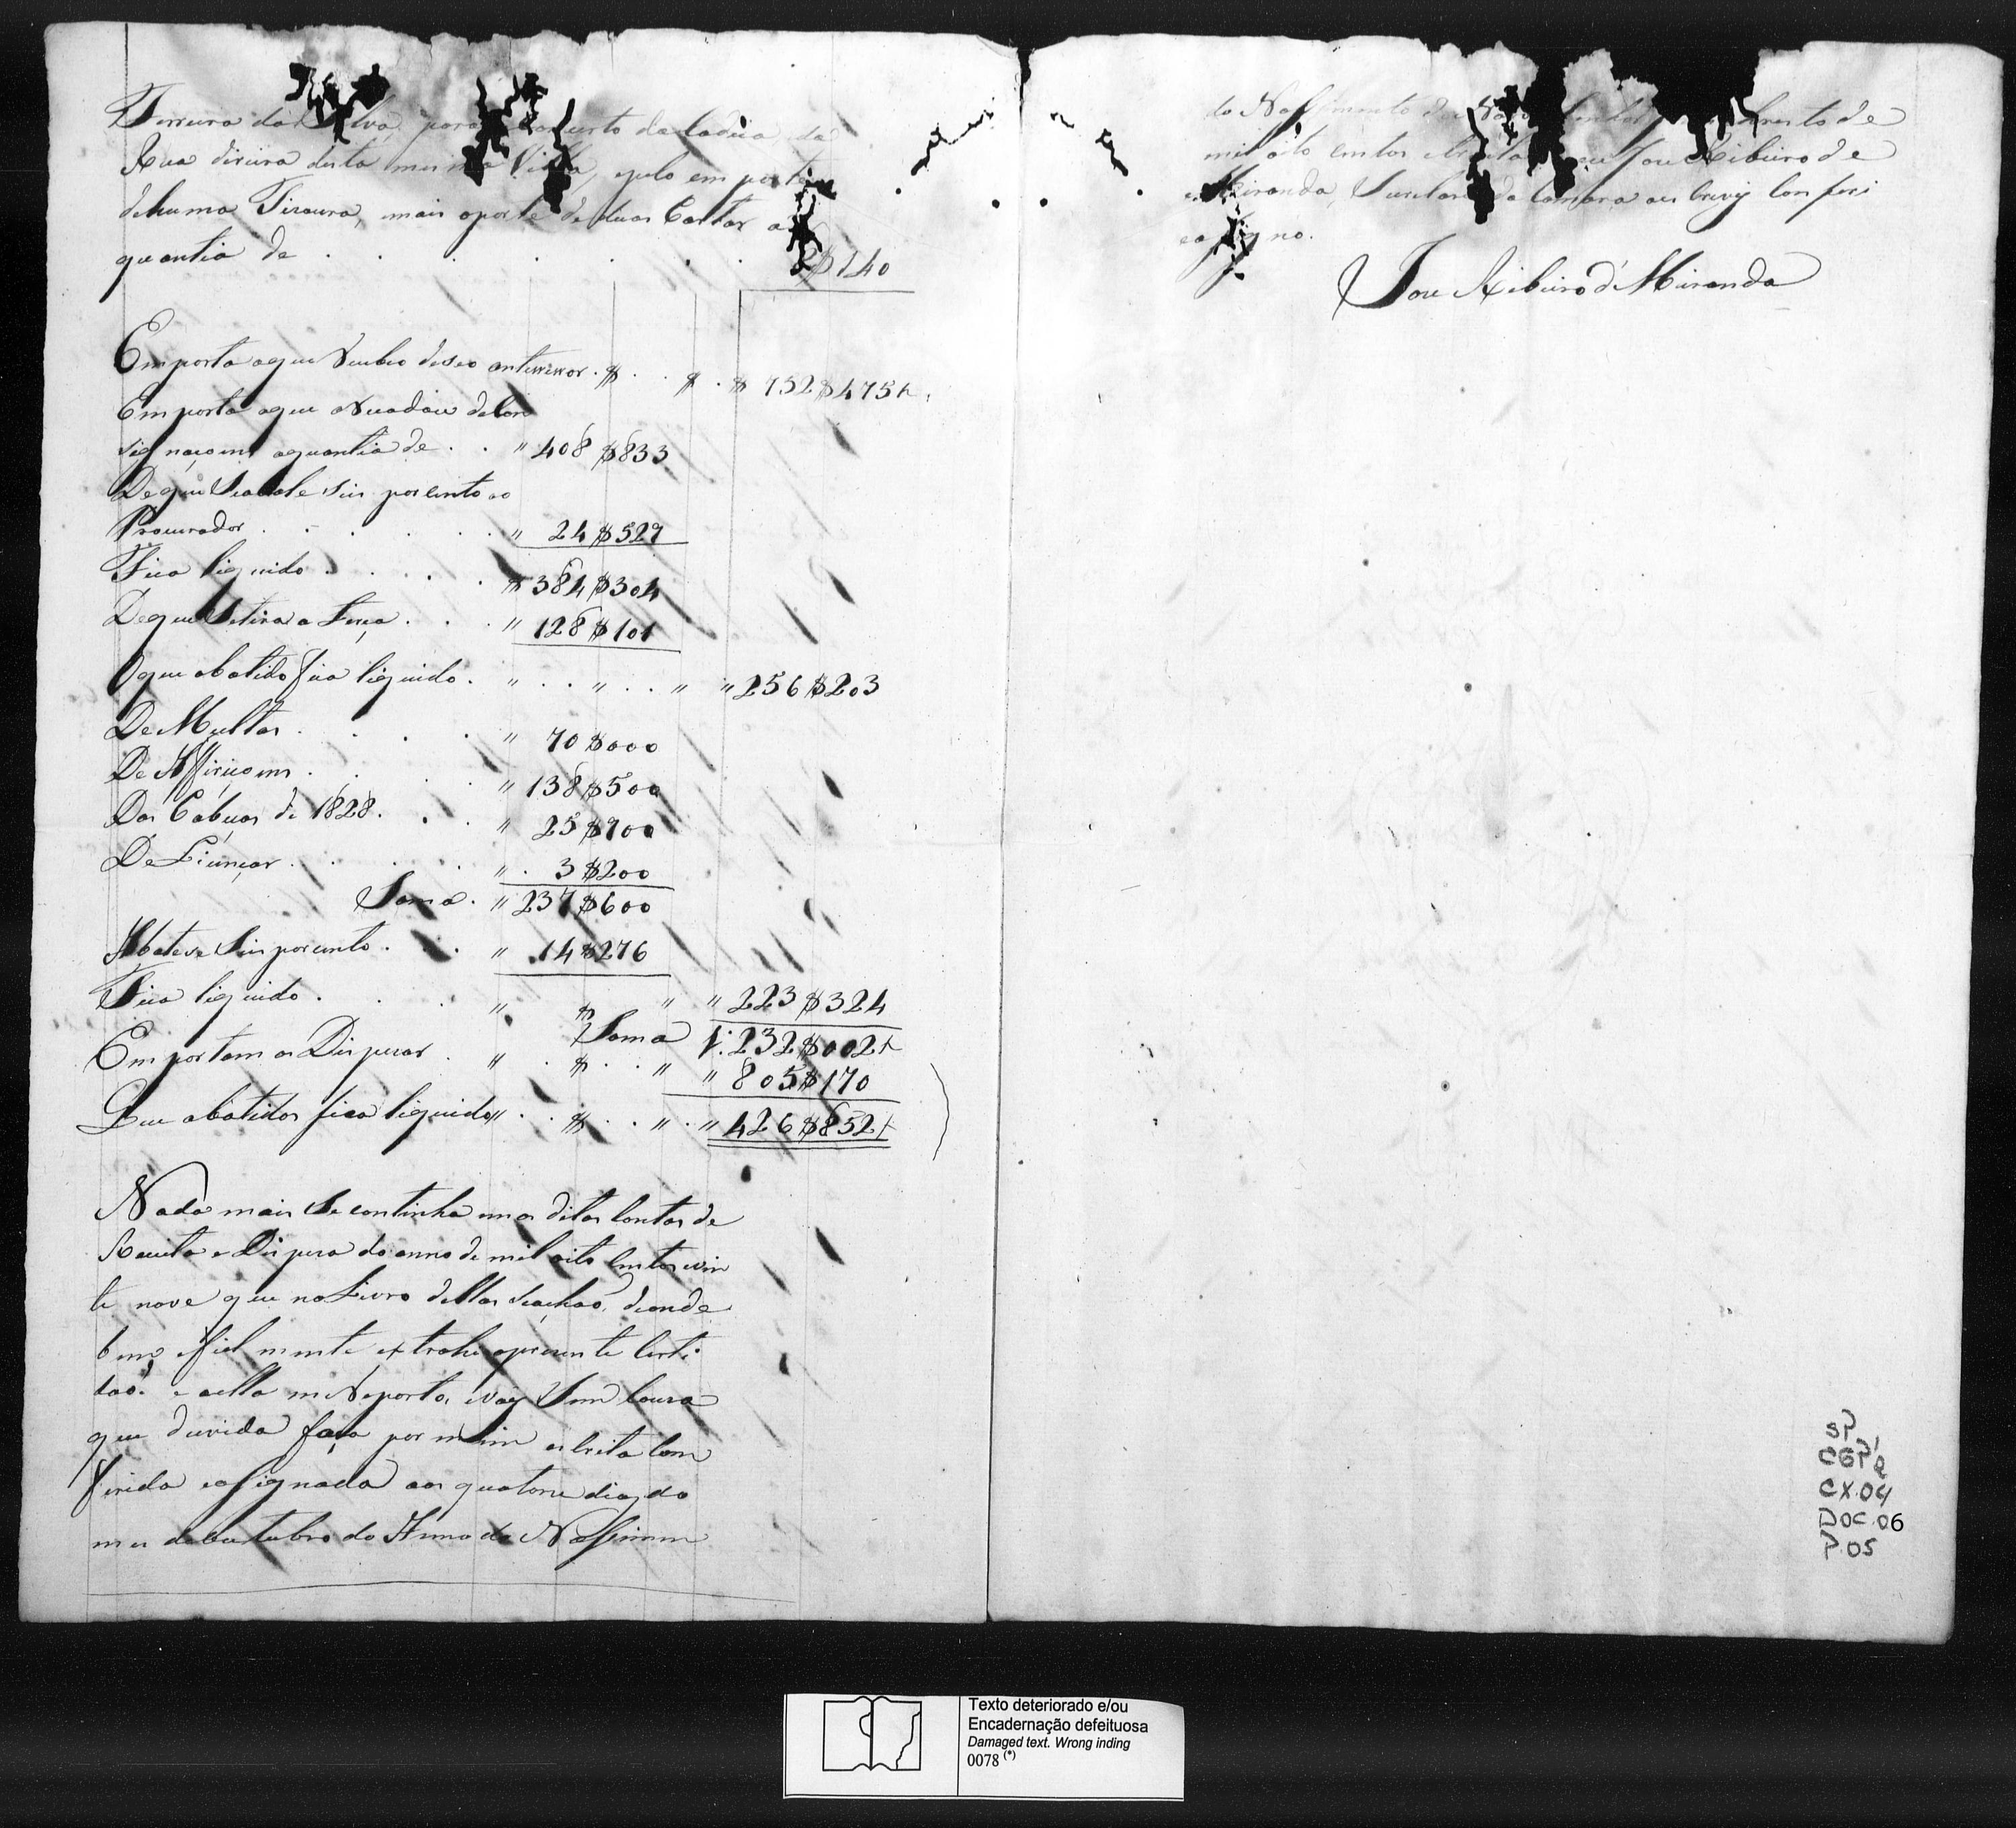 Ferreira da Silva, para concerto da Cadeia da
Rua direira desta mesma Villa, epelo em porte
dehuma Tizoura, mais oporte de duas Cartas a
quantia de . . . . . . . 2$140
Emporta aque Recebeo doseo antesseссor . $ . . $ . $ 752$475 ½
Emporta aque aRecadou deCon
signaçoens aquantia de . . " 408$833
Deque Seabate Seis porcento ao
Procurador . . . . . " 24$529
Fica liquido . . . . $ 384$304
Deque Setira a Terça . . . " 128$101
Oque abatido fica liquido . " . . " . . " " 256$203
De Multas . . . . " 70$000
De Afiriçoens . . . " 138$500
Das Cabeças de 1828 . . . " 25$900
De Licenças . . . . " . 3$200
Soma . " 237$600
Abatese Seis porcento . . . " 14$276
Fica liquido . . . " $ " " 223$324
Soma 1:232$002 ½
Emportam as Dispezas . " . $ . . " " 805$170
Que abatidos fica liquido " . . $ . . " . " 426$852 ½
Nada mais Se continha nas ditas Contas de
Receita e Dispeza do anno de mil oito Centos e vin
te nove que no Livro dellas Seachaõ, deonde
bem, efiel mente extrahi aprezente Certi
daõ. e aella me Reporto, evay Sem Couza
que duvida faça por mim escrita Con
firida eaSignada aos quatorze dias do
mez deOutubro do Anno do Nascimen
to Nascimento de
mil oito Centos etrinta eu Joze Ribeiro de
Miranda, Secretario da Camara aescrevy Con feri
eaSigno.
Joze Ribeiro d'Miranda
SP,
CGP,
CX.04
DOC.06
P.05
Texto deteriorado e/ou
Encadernação defeituosa
Damaged text. Wrong inding
0078 (*)